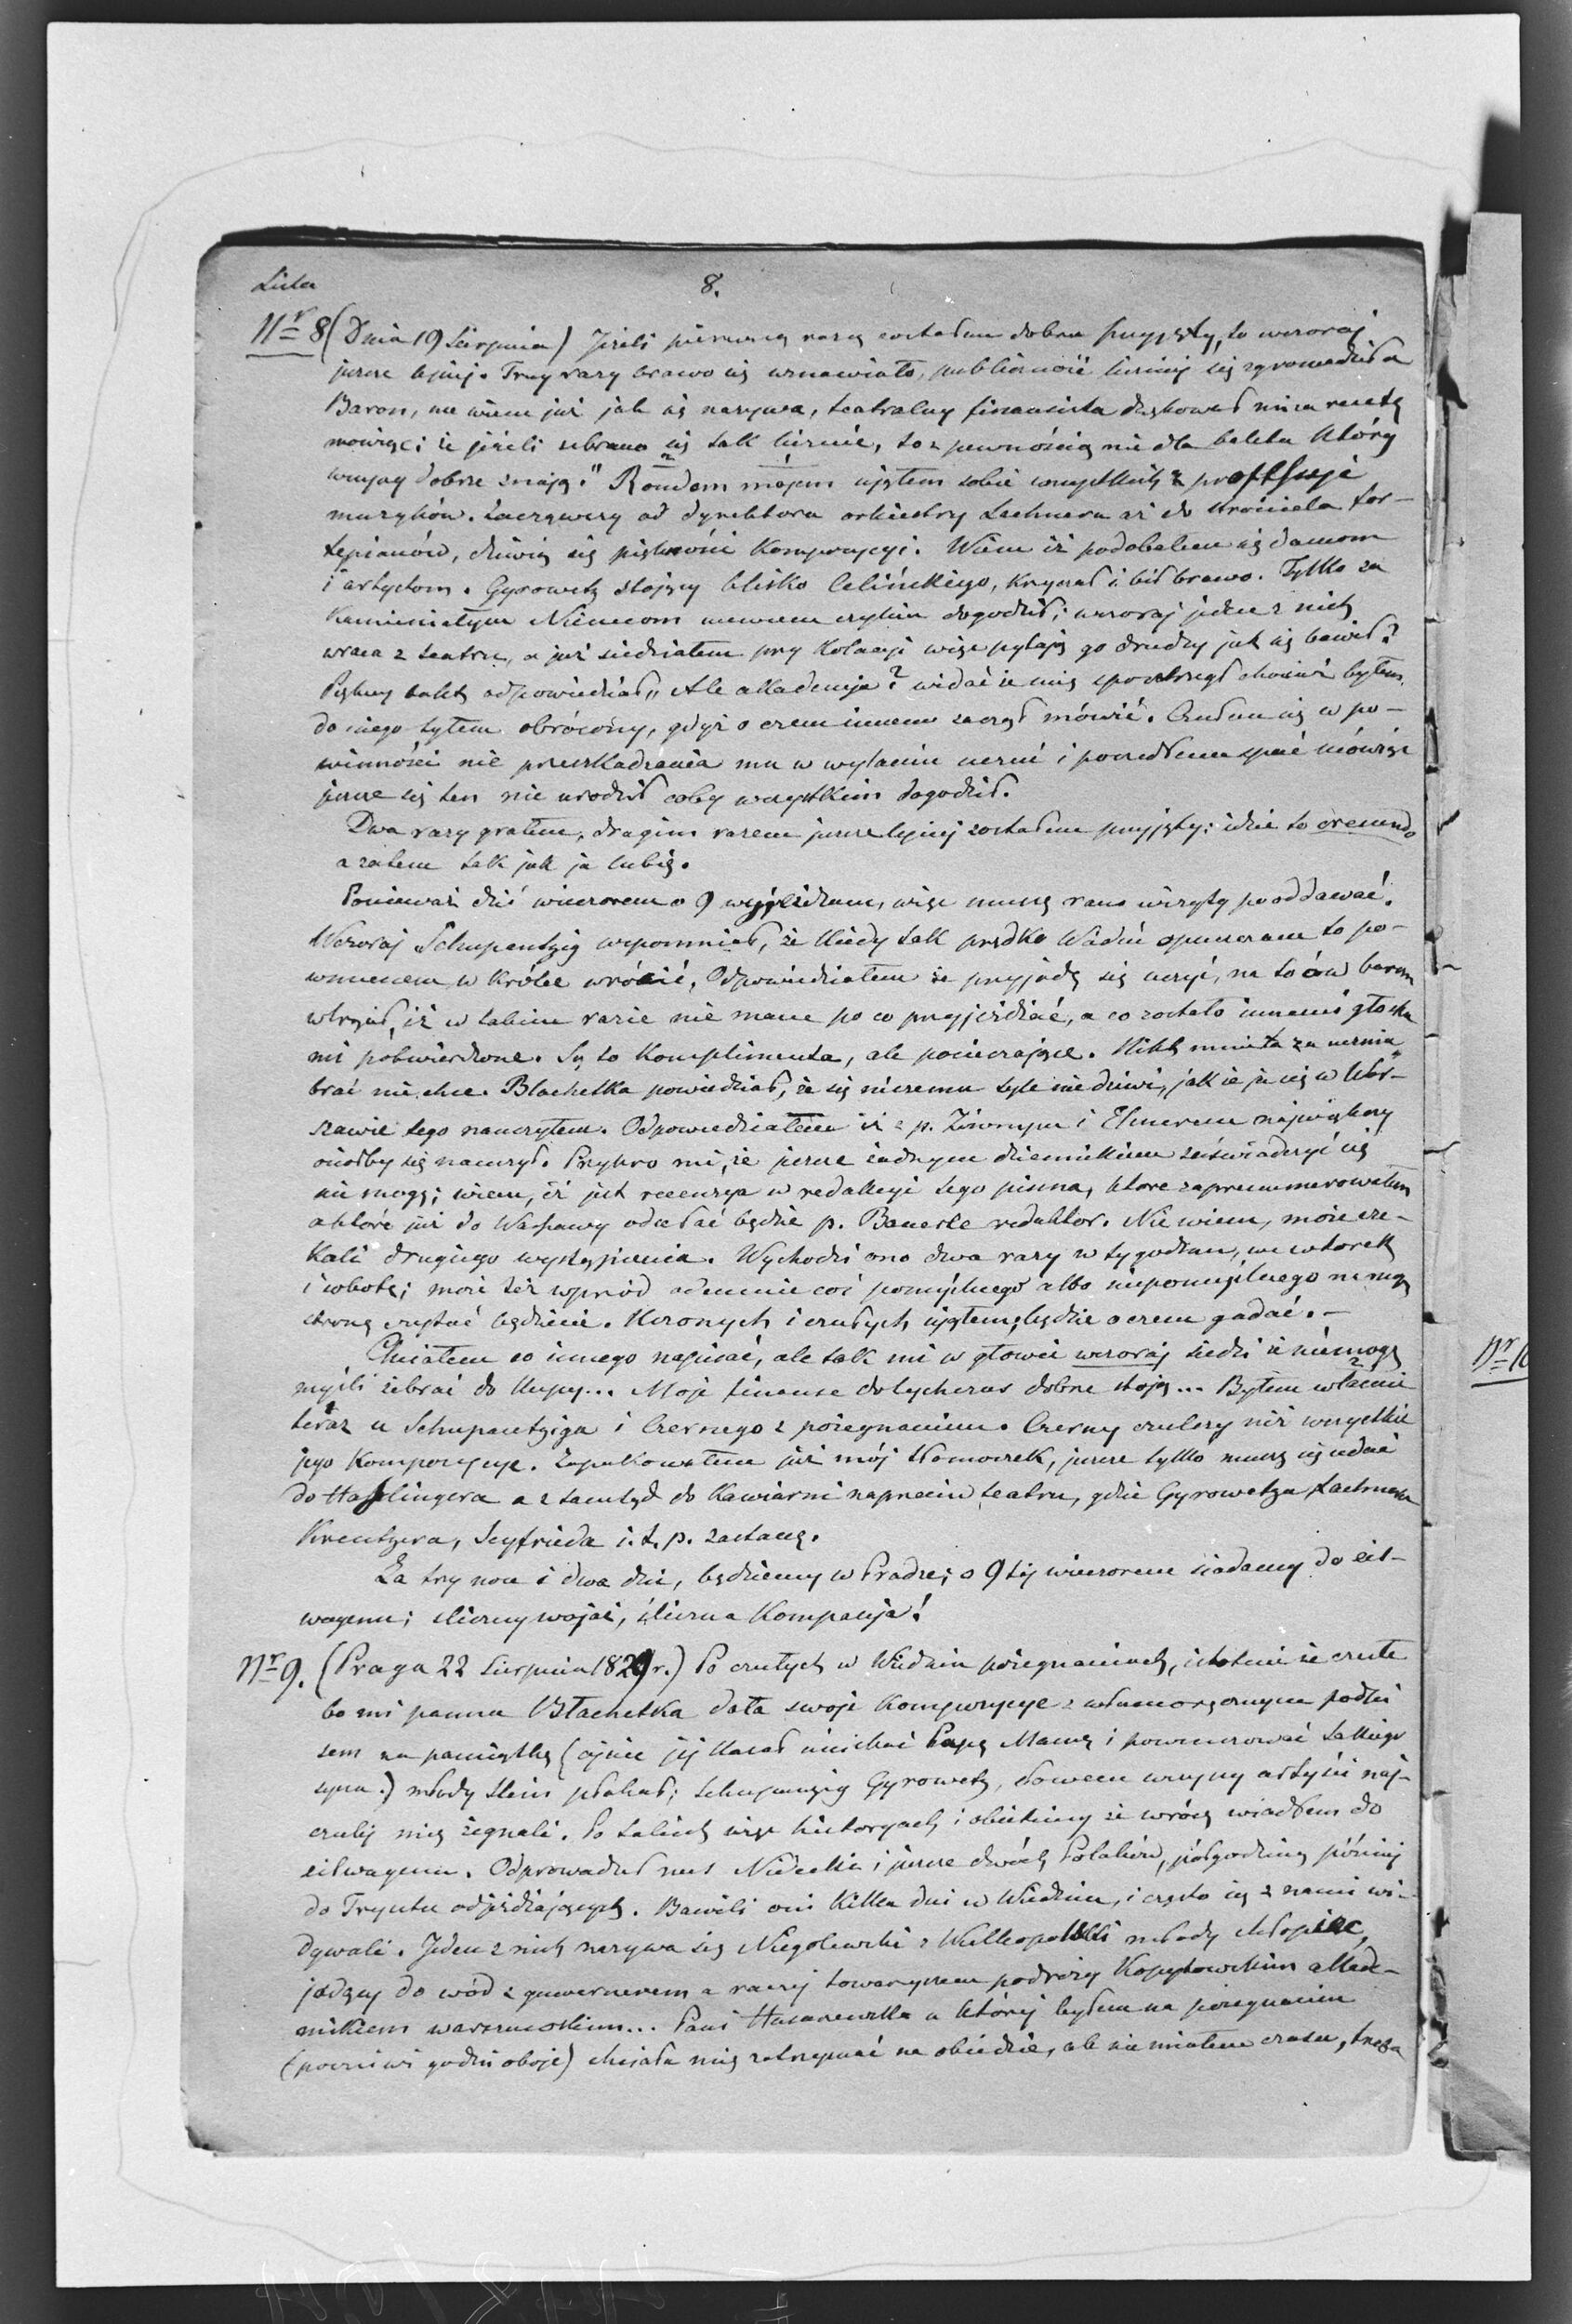 Lista
8.
Nr 8 (Dnia 19 Sierpnia) Jeżeli pierwszą razą zostałem dobrze przyjęty, to wczoraj
jeszcze lepiej. Trzy razy brawo się wznawiało, publiczność liczniej się zgromadziła
Baron, nie wiem już jak się nazywa, teatralny finansista dziękował mi za recetę
mówiąc: że jeżeli zebrano się tak licznie, to z pewnością nie dla baletu który
wszyscy dobrze znają." Rondem mojem ująłem sobie wszystkich z proffesyi
muzyków. Zacząwszy od dyrektora orkiestry Lachnera aż do stroiciela for-
tepianów, dziwią się piękności kompozycyi. Wiem iż podobałem się damom
i artystom. Gyrowetz stojący blisko Celińskiego, krzyczał i bił brawo. Tylko za
kamieniałym Niemcom niewiem czylim dogodził; wczoraj jeden z nich
wraca z teatru, a już siedziałem przy kolacyi więc pytają go drudzy jak się bawił?
Piękny balet odpowiedział „Ale akademija? widać że mię spostrzegł chociaż byłem
do niego tyłem obrócony, gdyż o czem innem zaczął mówić. Czułem się w po-
winności nie przeszkadzania mu w wylaniu uczuć i poszedłem spać mówiąc
jeszcze się ten nie urodził coby wszystkim dogodził.
Dwa razy grałem, drugim razem jeszcze lepiej zostałem przyjęty; idzie to crescendo
a zatem tak jak ja lubię.
Ponieważ dziś wieczorem o 9 wyjeżdżam, więc muszę rano wizyty pooddawać.
Wczoraj Schupantzig wspomniał, że kiedy tak prędko Wiedeń opuszczam to po-
winienem w krótce wrócić, Odpowiedziałem że przyjadę się uczyć, na to ów baron
wtrącił, iż w takim razie nie mam po co przyjeżdżać, a co zostało innemi głoska
mi potwierdzone. Są to komplimenta, ale pocieszające. Nikt mnie tu za ucznia
brać nie chce. Blachetka powiedział, że się niczemu tyle nie dziwi, jak że ja się w War-
szawie tego nauczyłem. Odpowiedziałem iż z p. Żiwnym i Elsnerem największy
osiołby się nauczył. Przykro mi, że jeszcze żadnym dziennikiem zaświadczyć się
nie mogę; wiem, iż jest recenzya w redakcyi tego pisma, które zaprenumerowałem
a które już do Warszawy odsełać będzie p. Bauerle redaktor. Nie wiem, może cze-
kali drugiego wystąpienia. Wychodzi ono dwa razy w tygodniu, we wtorek
i sobotę; może też wprzód odemnie coś pomyślnego albo niepomyślnego na mą
stronę czytać będziecie. Uczonych i czułych ująłem, będzie o czem gadać. —
Chciałem co innego napisać, ale tak mi w głowie wczoraj siedzi że niemogę
myśli zebrać do kupy... Moje finanse dotychczas dobrze stoją... Byłem właśnie
teraz u Schupantziga i Czernego z pożegnaniem. Czerny czulszy niż wszystkie
jego kompozycye. Zapakowałem już mój tłomoczek, jeszcze tylko muszę się udać
do Haslingera a z tamtąd do kawiarni naprzeciw teatru, gdzie Gyrowetza Lachnera
Kreutzera, Seyfrieda i. t. p. zastanę.
Za trzy noce i dwa dni, będziemy w Pradze; o 9tej wieczorem siadamy do eil-
wagenu; śliczny wojaż, śliczna kompanija!
Nr 9. (Praga 22 Sierpnia 1829 r.) Po czułych w Wiedniu pożegnaniach, istotnie że czułe
bo mi panna Blachetka dała swoje kompozycye z własnoręcznym podpi
sem na pamiątkę (ojciec jej kazał uściskać Papę Mamę i powinszować takiego
syna.) młody Stein płakał; Schupanzig Gyrowetz, słowem wszyscy artyści naj-
czulej mię żegnali. Po takich więc historyach i obietnicy że wrócę wsiadłem do
eilwagenu. Odprowadził nas Nidecki i jeszcze dwóch Polaków, półgodziny później
do Tryestu odjeżdżających. Bawili oni kilka dni w Wiedniu, i często się z nami wi-
dywali. Jeden z nich nazywa się Niegolewski z Wielkopolski młody chłopiec,
jadący do wód z guwernerem a raczej towarzyszem podróży Kopytowskim akade-
mikiem warszawskim... Pani Husarzewska u której byłem na pożegnaniu
(poczciwi godni oboje) chciała mię zatrzymać na obiedzie, ale nie miałem czasu, trzeba
Nr 10